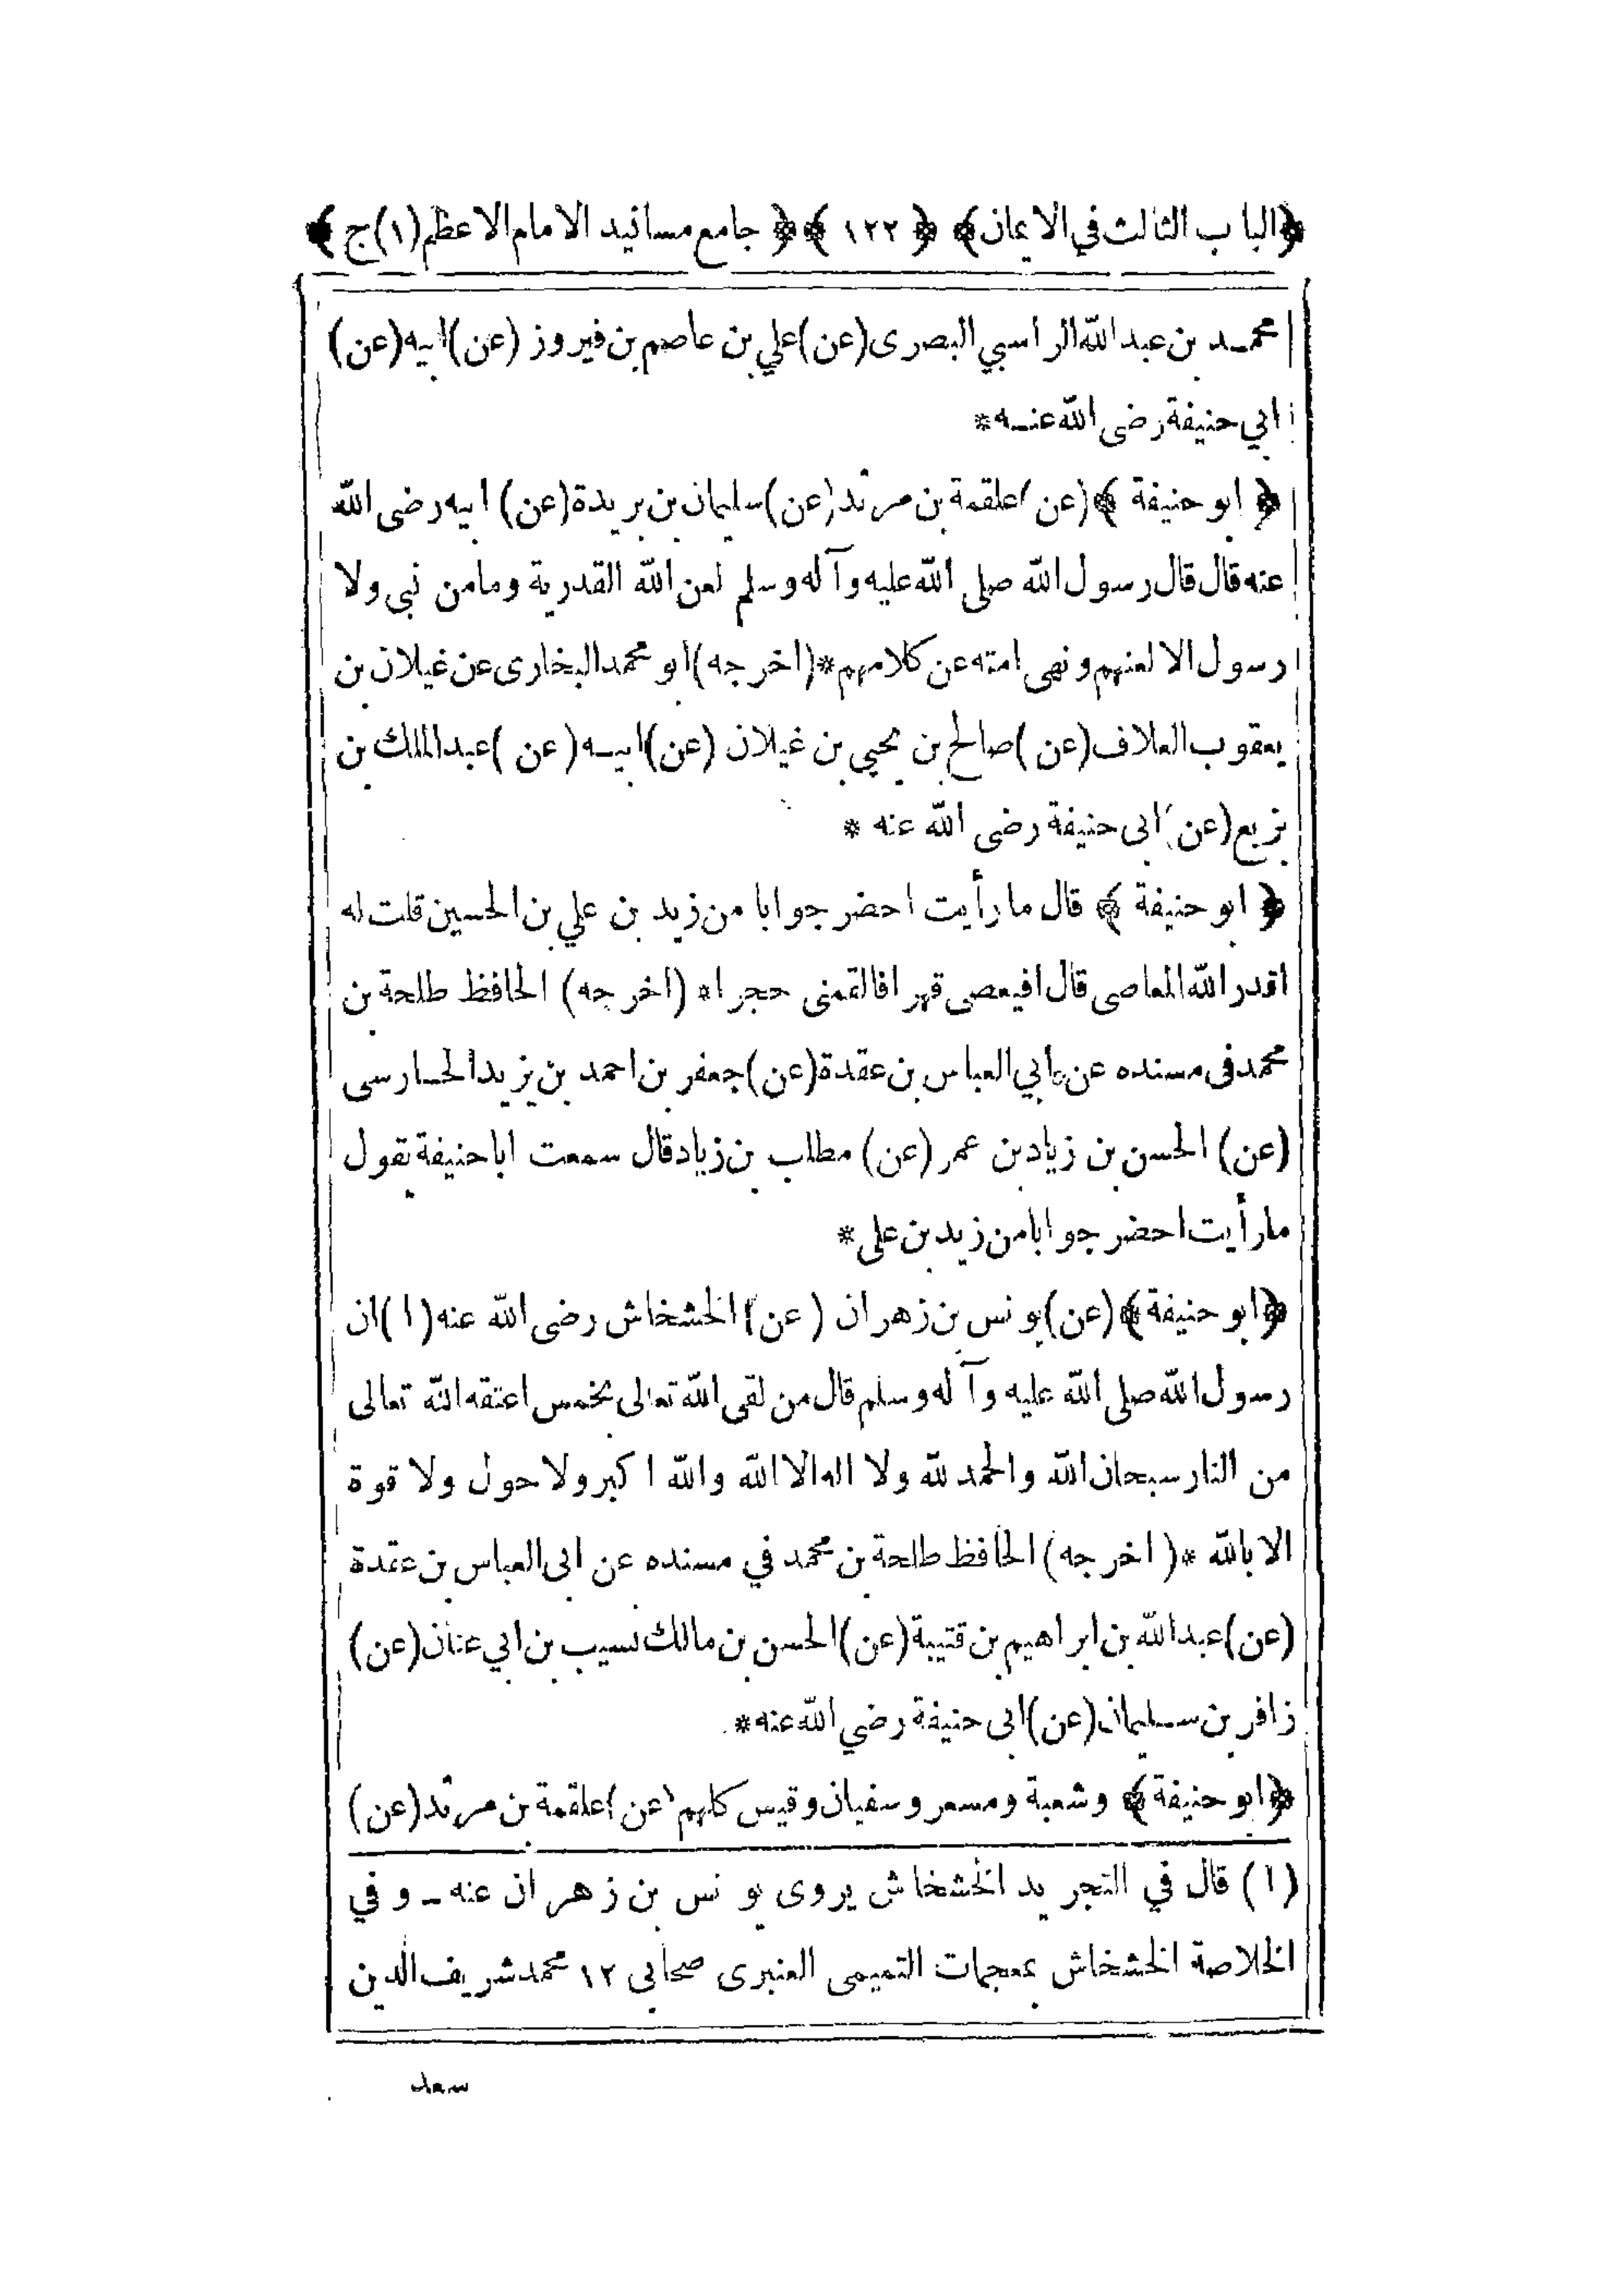 ﴿الباب الثالث في الايمان﴾ ﴿ ١٢٢ ﴾ ﴿ جامع مسانيد الامام الاعظم (١) ج ﴾
محمد بن عبد الله الراسبي البصرى (عن) علي بن عاصم بن فيروز (عن) ابيه (عن)
ابي حنيفة رضى الله عنه *
﴿ ابو حنيفة ﴾ (عن) علقمة بن مرثد (عن) سليمان بن بريدة (عن) ابيه رضى الله
عنه قال قال رسول الله صلى الله عليه وآله وسلم لعن الله القدرية وما من نبى ولا
رسول الا لعنهم ونهى امته عن كلامهم * (اخرجه) ابو محمد البخارى عن غيلان بن
يعقوب العلاف (عن) صالح بن يحيي بن غيلان (عن) ابيه (عن) عبد الملك بن
بزيع (عن) ابى حنيفة رضى الله عنه *
﴿ ابو حنيفة ﴾ قال ما رأيت احضر جوابا من زيد بن علي بن الحسين قلت له
اقدر الله المعاصى قال افيعصى قهرا فالقمنى حجرا * (اخرجه) الحافظ طلحة بن
محمد فى مسنده عن ابي العباس بن عقدة (عن) جعفر بن احمد بن يزيد الحارسى
(عن) الحسن بن زياد بن عمر (عن) مطلب بن زياد قال سمعت ابا حنيفة يقول
ما رأيت احضر جوابا من زيد بن على *
﴿ابو حنيفة﴾ (عن) يونس بن زهران (عن) الخشخاش رضى الله عنه (١) ان
رسول الله صلى الله عليه وآله وسلم قال من لقى الله تعالى بخمس اعتقه الله تعالى
من النار سبحان الله والحمد لله ولا اله الا الله والله اكبر ولا حول ولا قوة
الا بالله * (اخرجه) الحافظ طلحة بن محمد في مسنده عن ابى العباس بن عقدة
(عن) عبد الله بن ابراهيم بن قتيبة (عن) الحسن بن مالك نسيب بن ابي عنان (عن)
زافر بن سليمان (عن) ابى حنيفة رضي الله عنه *
﴿ابو حنيفة﴾ وشعبة ومسعر وسفيان وقيس كلهم (عن) علقمة بن مرثد (عن)
(١) قال في التجريد الخشخاش يروى يونس بن زهران عنه ـ وفي
الخلاصة الخشخاش بمعجمات التميمى العنبرى صحابي ١٢ محمد شريف الدين
سعد